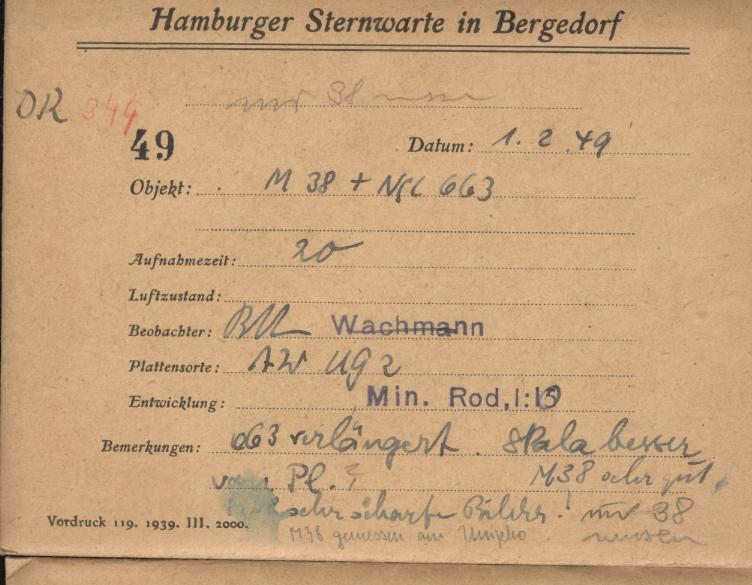 Hamburger Sternwarte in Bergedorf
nur 38 messen
OR 344
49 Datum: 1. 2. 49
Objekt: M 38 + NGC 663
Aufnahmezeit: 20
Luftzustand:
Beobachter: Wachmann
Plattensorte: AW UG2
Entwicklung: Min. Rod, 1:15
Bemerkungen: 663 verlängert. Skala besser
Pl. ? M38 sehr gut,
sehr scharfe Bilder! nur 38
Vordruck 119. 1939. III. 2000. M38 gemessen am messen